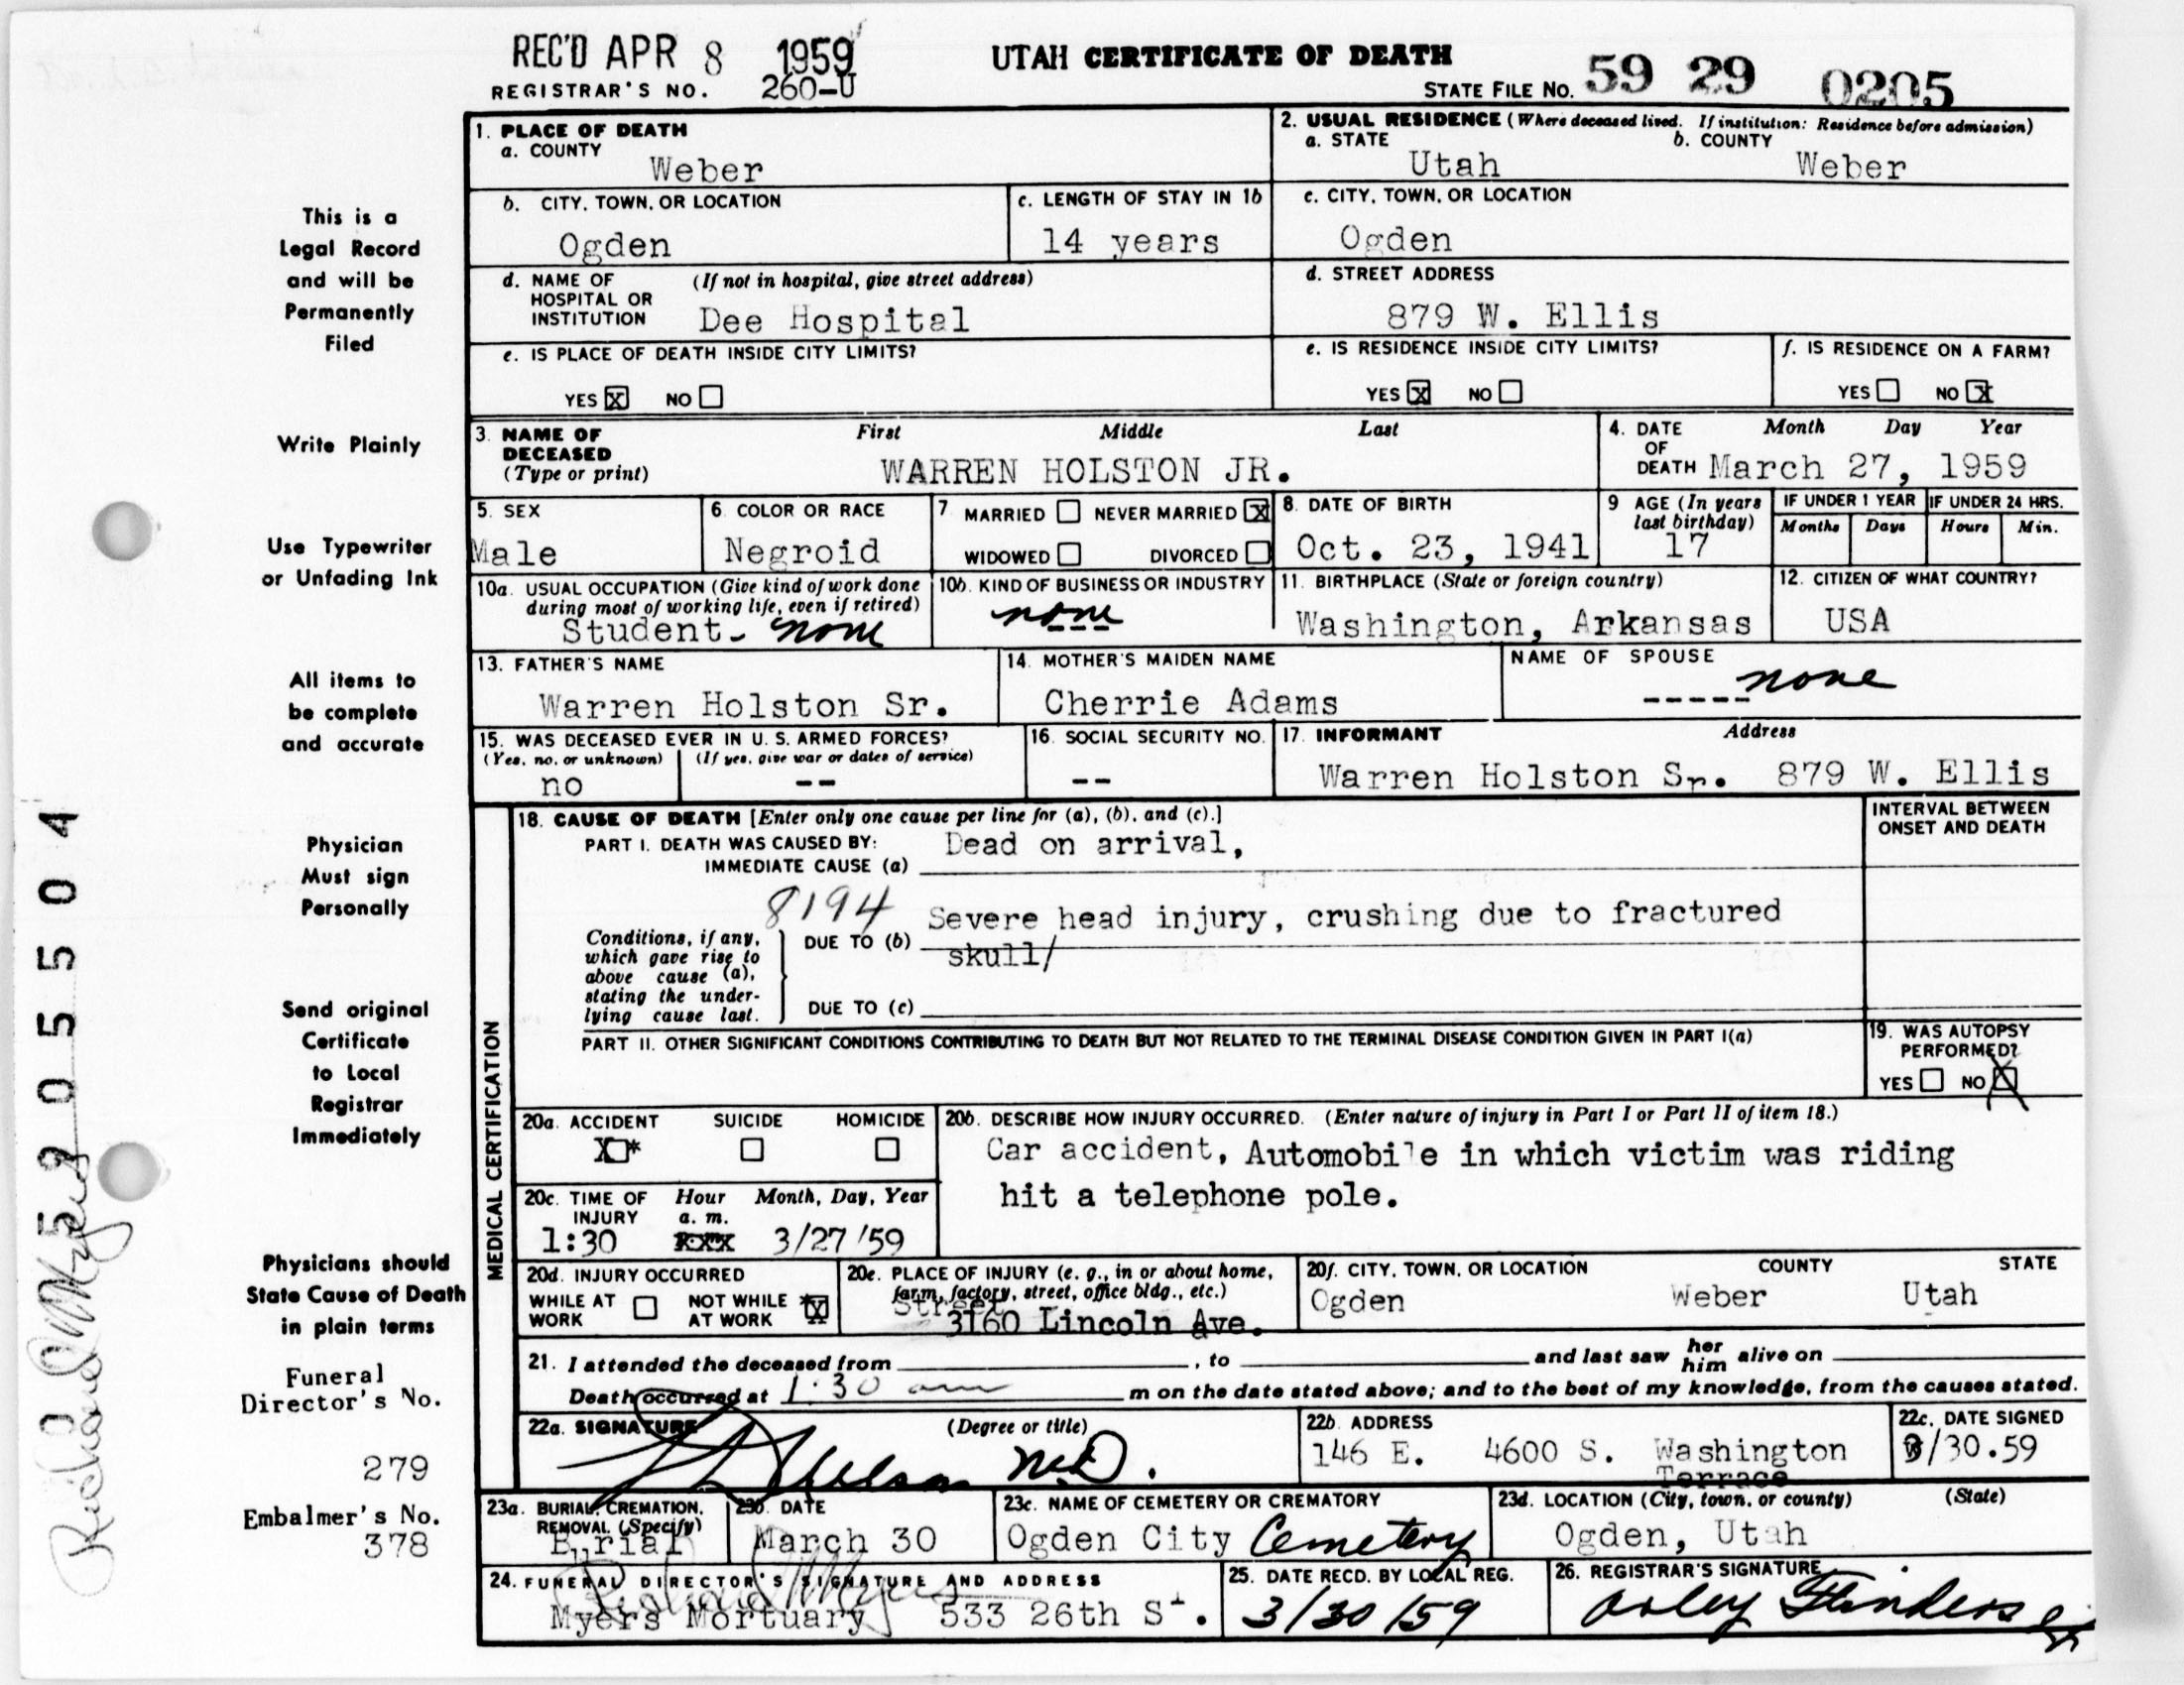 REC'D APR 8 1959
UTAH CERTIFICATE OF DEATH
REGISTRAR'S NO. 260-U
STATE FILE NO. 59 29 0205
1. PLACE OF DEATH
a. COUNTY
Weber
2. USUAL RESIDENCE (Where deceased lived. If institution: Residence before admission)
a. STATE b. COUNTY
Utah Weber
b. CITY, TOWN, OR LOCATION
Ogden
c. LENGTH OF STAY IN 1b
14 years
c. CITY, TOWN, OR LOCATION
Ogden
d. NAME OF (If not in hospital, give street address)
HOSPITAL OR
INSTITUTION Dee Hospital
d. STREET ADDRESS
879 W. Ellis
e. IS PLACE OF DEATH INSIDE CITY LIMITS?
YES X NO
e. IS RESIDENCE INSIDE CITY LIMITS?
YES X NO
f. IS RESIDENCE ON A FARM?
YES NO X
3. NAME OF First Middle Last
DECEASED
(Type or print) WARREN HOLSTON JR.
4. DATE Month Day Year
OF
DEATH March 27, 1959
5. SEX
Male
6. COLOR OR RACE
Negroid
7 MARRIED NEVER MARRIED X
WIDOWED DIVORCED
8. DATE OF BIRTH
Oct. 23, 1941
9 AGE (In years
last birthday)
17
IF UNDER 1 YEAR
Months Days
IF UNDER 24 HRS.
Hours Min.
10a. USUAL OCCUPATION (Give kind of work done
during most of working life, even if retired)
Student - none
10b. KIND OF BUSINESS OR INDUSTRY
none
11. BIRTHPLACE (State or foreign country)
Washington, Arkansas
12. CITIZEN OF WHAT COUNTRY?
USA
13. FATHER'S NAME
Warren Holston Sr.
14. MOTHER'S MAIDEN NAME
Cherrie Adams
NAME OF SPOUSE
----- none
15. WAS DECEASED EVER IN U. S. ARMED FORCES?
(Yes, no, or unknown) (If yes, give war or dates of service)
no --
16. SOCIAL SECURITY NO.
--
17. INFORMANT Address
Warren Holston Sr. 879 W. Ellis
MEDICAL CERTIFICATION
18. CAUSE OF DEATH [Enter only one cause per line for (a), (b), and (c).]
PART I. DEATH WAS CAUSED BY:
IMMEDIATE CAUSE (a) Dead on arrival,
INTERVAL BETWEEN
ONSET AND DEATH
8194
Conditions, if any,
which gave rise to
above cause (a),
stating the under-
lying cause last.
DUE TO (b) Severe head injury, crushing due to fractured
skull/
DUE TO (c)
PART II. OTHER SIGNIFICANT CONDITIONS CONTRIBUTING TO DEATH BUT NOT RELATED TO THE TERMINAL DISEASE CONDITION GIVEN IN PART I(a)
19. WAS AUTOPSY
PERFORMED?
YES NO X
20a. ACCIDENT SUICIDE HOMICIDE
X*
20b. DESCRIBE HOW INJURY OCCURRED. (Enter nature of injury in Part I or Part II of item 18.)
Car accident, Automobile in which victim was riding
hit a telephone pole.
20c. TIME OF Hour Month, Day, Year
INJURY a. m.
1:30 3/27/59
20d. INJURY OCCURRED
WHILE AT NOT WHILE *X
WORK AT WORK
20e. PLACE OF INJURY (e. g., in or about home,
farm, factory, street, office bldg., etc.)
Street
3160 Lincoln Ave.
20f. CITY, TOWN, OR LOCATION COUNTY STATE
Ogden Weber Utah
21. I attended the deceased from , to and last saw her him alive on
Death occurred at 1:30 am m on the date stated above; and to the best of my knowledge, from the causes stated.
22a. SIGNATURE (Degree or title)
M.D.
22b. ADDRESS
146 E. 4600 S. Washington
Terrace
22c. DATE SIGNED
3/30.59
23a. BURIAL, CREMATION,
REMOVAL (Specify)
Burial
23b. DATE
March 30
23c. NAME OF CEMETERY OR CREMATORY
Ogden City Cemetery
23d. LOCATION (City, town, or county) (State)
Ogden, Utah
24. FUNERAL DIRECTOR'S SIGNATURE AND ADDRESS
Richard Myers
Myers Mortuary 533 26th St.
25. DATE RECD. BY LOCAL REG.
3/30/59
26. REGISTRAR'S SIGNATURE
Flinders
This is a
Legal Record
and will be
Permanently
Filed
Write Plainly
Use Typewriter
or Unfading Ink
All items to
be complete
and accurate
Physician
Must sign
Personally
Send original
Certificate
to Local
Registrar
Immediately
Physicians should
State Cause of Death
in plain terms
Funeral
Director's No.
279
Embalmer's No.
378
Richard Myers